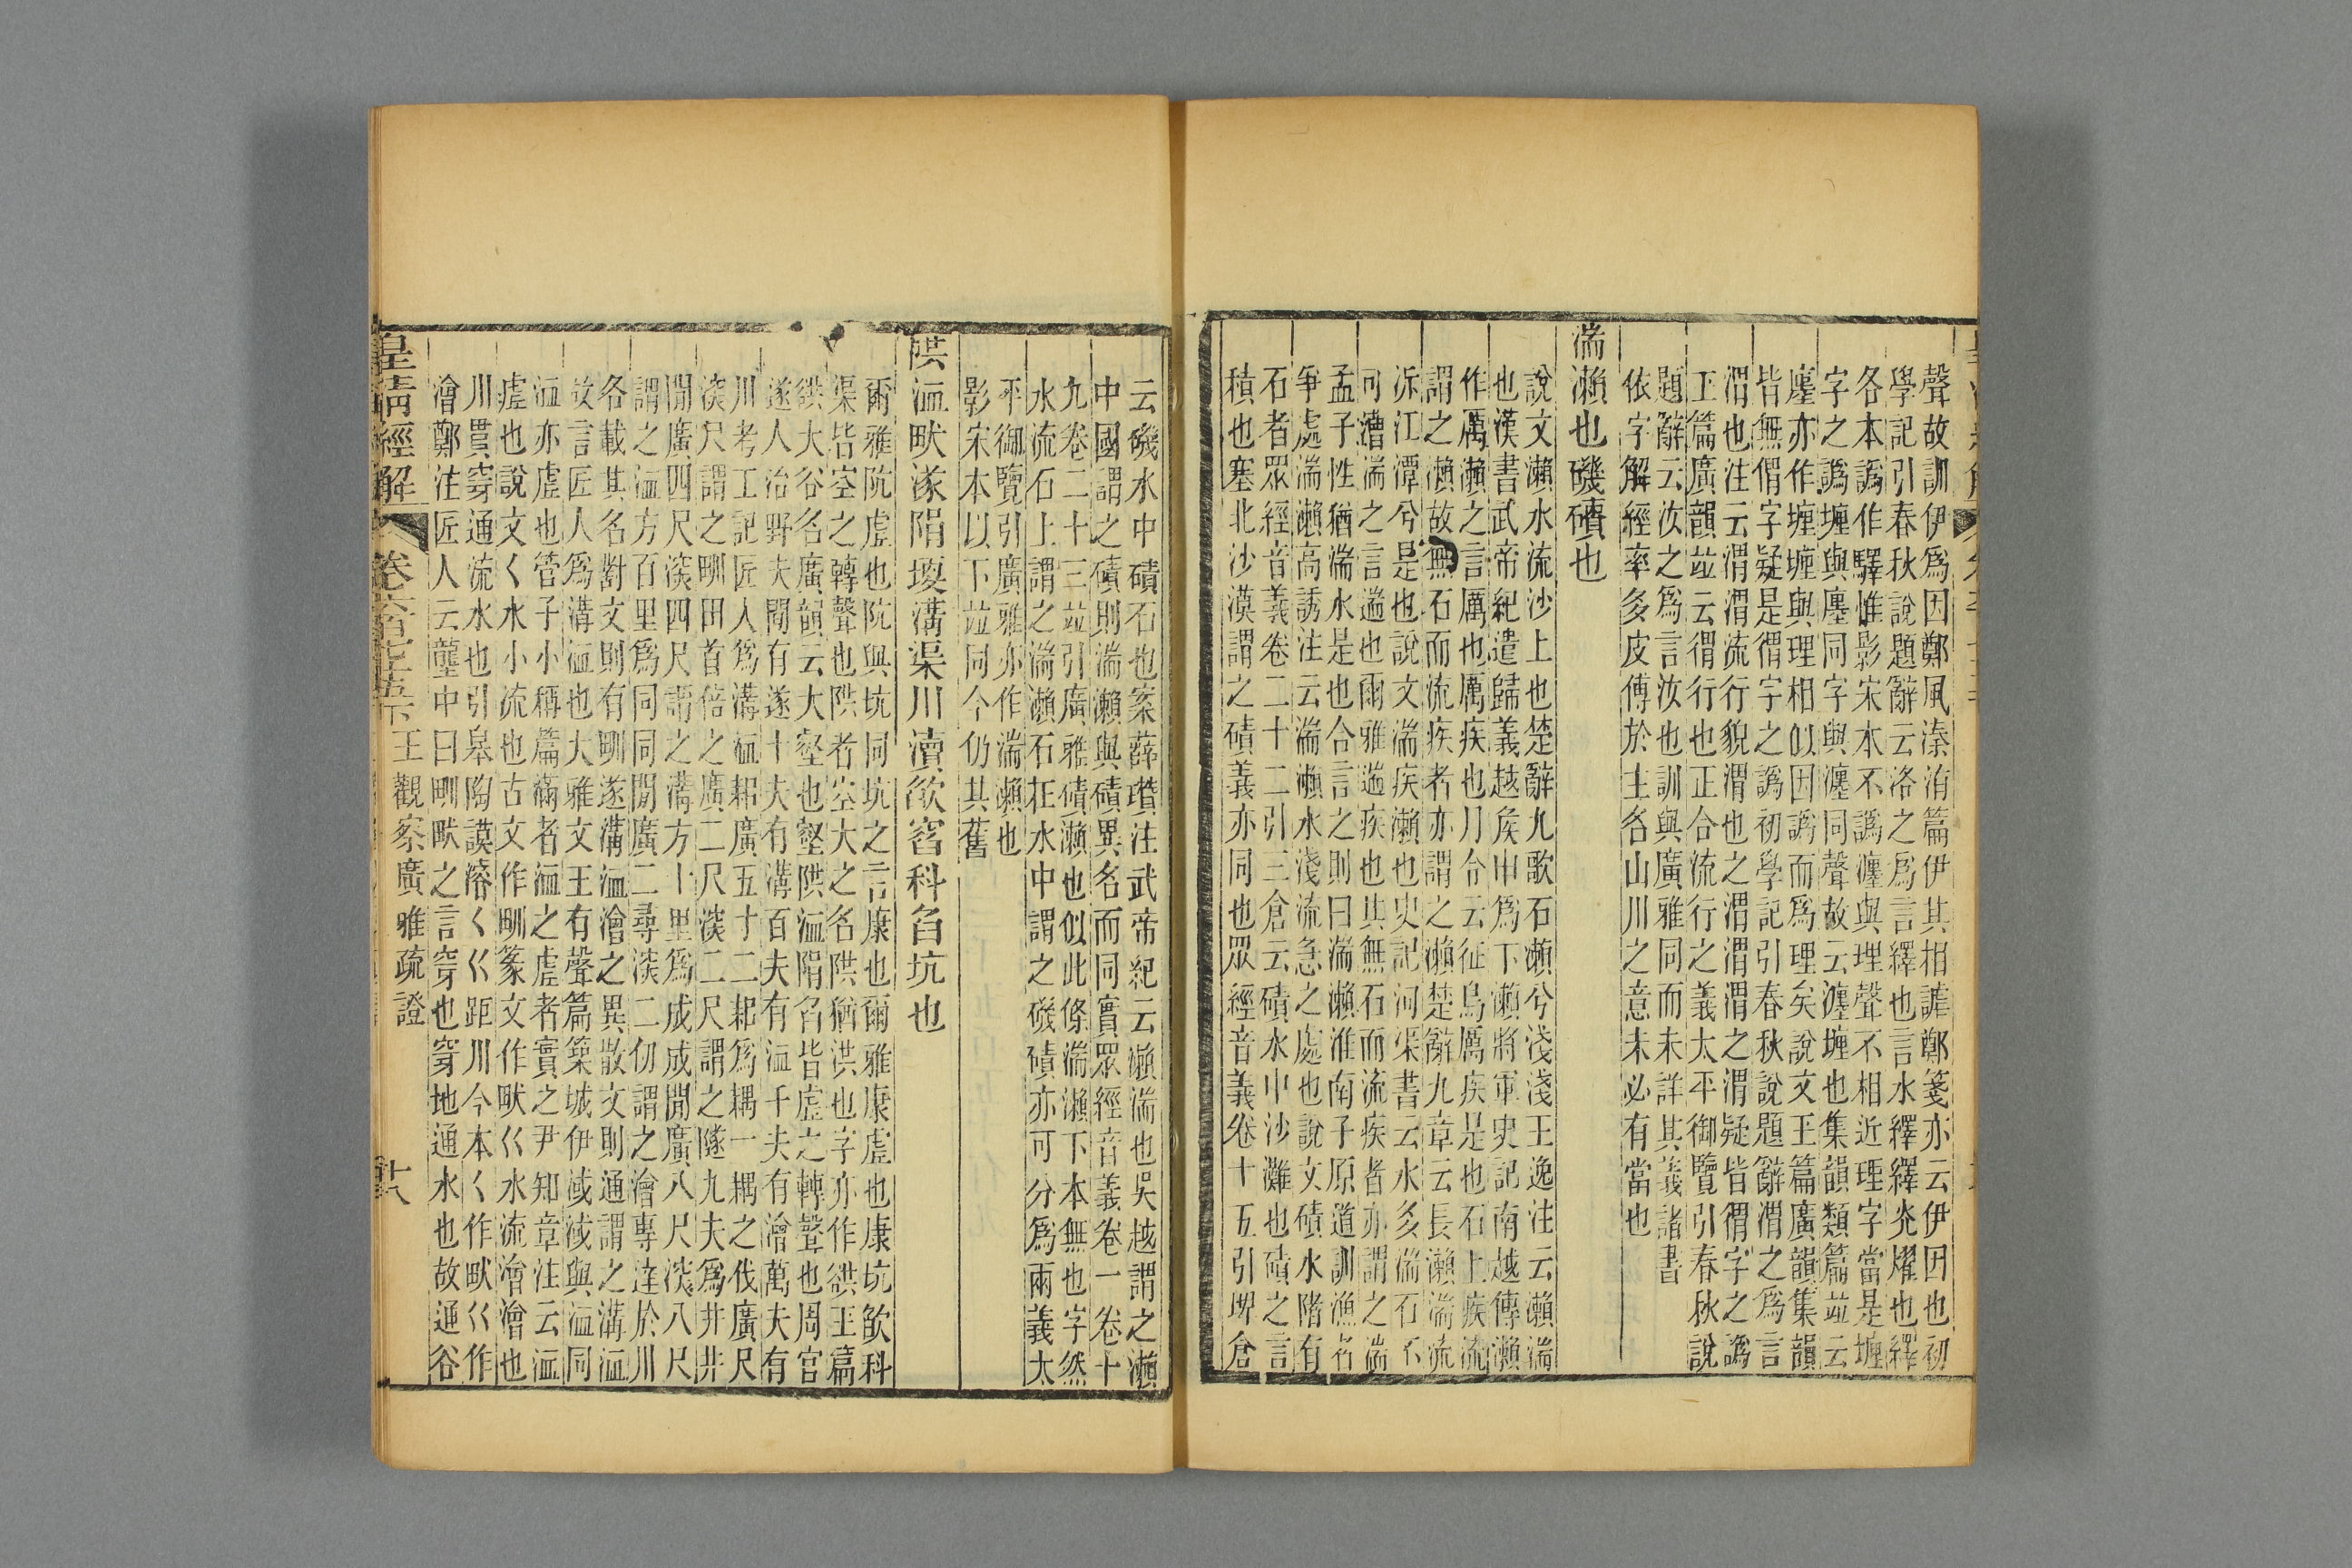 聲故訓伊爲因鄭風溱洧篇伊其相謔鄭箋亦云伊因也初
學記引春秋說題辭云洛之爲言繹也言水繹繹炎燿也繹
各本譌作驛惟影宋本不譌㢆與理聲不相近理字當是㙻
字之譌㙻與廛同字與瀍同聲故云瀍㙻也集韻類篇竝云
廛亦作㙻㙻與理相似因譌而爲理矣說文玉篇廣韻集韻
皆無㥜字疑是㥜字之譌初學記引春秋說題辭渭之爲言
渭也注云渭渭流行貌渭也之渭渭渭之渭疑皆㥜字之譌
玉篇廣韻竝云㥜行也正合流行之義太平御覽引春秋說
題辭云汝之爲言汝也訓與廣雅同而未詳其義諸書
依字解經率多皮傅於主名山川之意未必有當也
湍瀨也磯磧也
說文瀨水流沙上也楚辭九歌石瀨兮淺淺王逸注云瀨湍
也漢書武帝紀遣歸義越矦甲爲下瀨將軍史記南越傳瀨
作厲瀨之言厲也厲疾也月令云征鳥厲疾是也石上疾流
謂之瀨故無石而流疾者亦謂之瀨楚辭九章云長瀨湍流
泝江潭兮是也說文湍疾瀨也史記河渠書云水多湍石不
可漕湍之言遄也爾雅遄疾也其無石而流疾者亦謂之湍
孟子性猶湍水是也合言之則曰湍瀨淮南子原道訓漁者
爭處湍瀨高誘注云湍瀨水淺流急之處也說文磧水陼有
石者眾經音義卷二十二引三倉云磧水中沙灘也磧之言
積也塞北沙漠謂之磧義亦同也眾經音義卷十五引埤倉
云磯水中磧石也案薛瓚注武帝紀云瀨湍也吳越謂之瀨
中國謂之磧則湍瀨與磧異名而同實眾經音義卷一卷十
九卷二十三竝引廣雅磧瀨也似此條湍瀨下本無也字然
水流石上謂之湍瀨石在水中謂之磯磧亦可分爲兩義太
平御覽引廣雅亦作湍瀨也
影宋本以下竝同今仍其舊
谼洫畎遂㵎㙇溝渠川瀆欿窞科臽坑也
爾雅阬虛也阬與坑同坑之言康也爾雅康虛也康坑欿科
渠皆空之轉聲也谼者空大之名谼猶洪也字亦作谼玉篇
谼大谷名廣韻云大壑也壑谼洫㵎臽皆虛之轉聲也周官
遂人治野夫閒有遂十夫有溝百夫有洫千夫有澮萬夫有
川考工記匠人爲溝洫耜廣五寸二耜爲耦一耦之伐廣尺
深尺謂之甽田首倍之廣二尺深二尺謂之隧九夫爲井井
閒廣四尺深四尺謂之溝方十里爲成成閒廣八尺深八尺
謂之洫方百里爲同同閒廣二尋深二仞謂之澮專達於川
各載其名對文則有甽遂溝洫澮之異散文則通謂之溝洫
故言匠人爲溝洫也大雅文王有聲篇築城伊淢淢與洫同
洫亦虛也管子小稱篇滿者洫之虛者實之尹知章注云洫
虛也說文〈水小流也古文作甽篆文作畎巜水流澮澮也
川貫穿通流水也引皋陶謨濬〈巜距川今本〈作畎巜作
澮鄭注匠人云壟中曰甽畎之言穿也穿地通水也故通谷
皇清經解 卷六百七十五下 王觀察廣雅疏證 十六